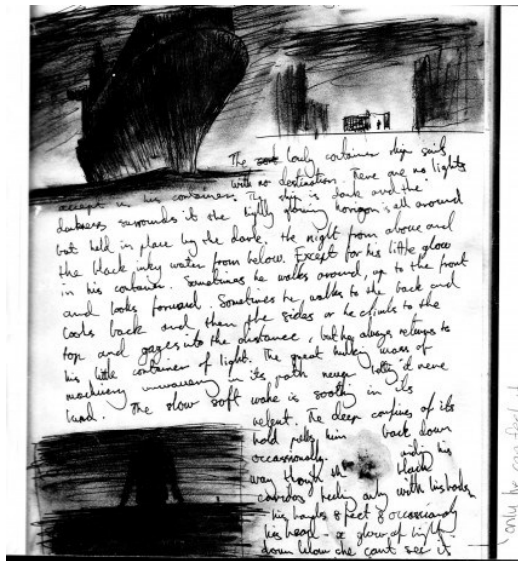 The lonly container ship sails
with no destination. There are no lights
accept in his container. The ship is dark and the
darkness surrounds it the lightly glowing horizon is all around
but held in place by the dark. the night from above and
the black inky water from below. Except for his little glow
in his container. Sometimes he walks around, up to the front
and looks forward. Sometimes he walks to the back and
looks back and then the sides or he climbs to the
top and gazes into the distance, but he always returns to
his little container of light. The great hulking mass of
machinery unwavering in its path never
land. The slow soft wake is soothing in its
The deep confines of its
hold pulls him back down
occassionally. his
way though the black
corridors feeling only with his body
his hands & feet & occassionaly
his head - a glow of light
down below he cant see it
only he can feel it